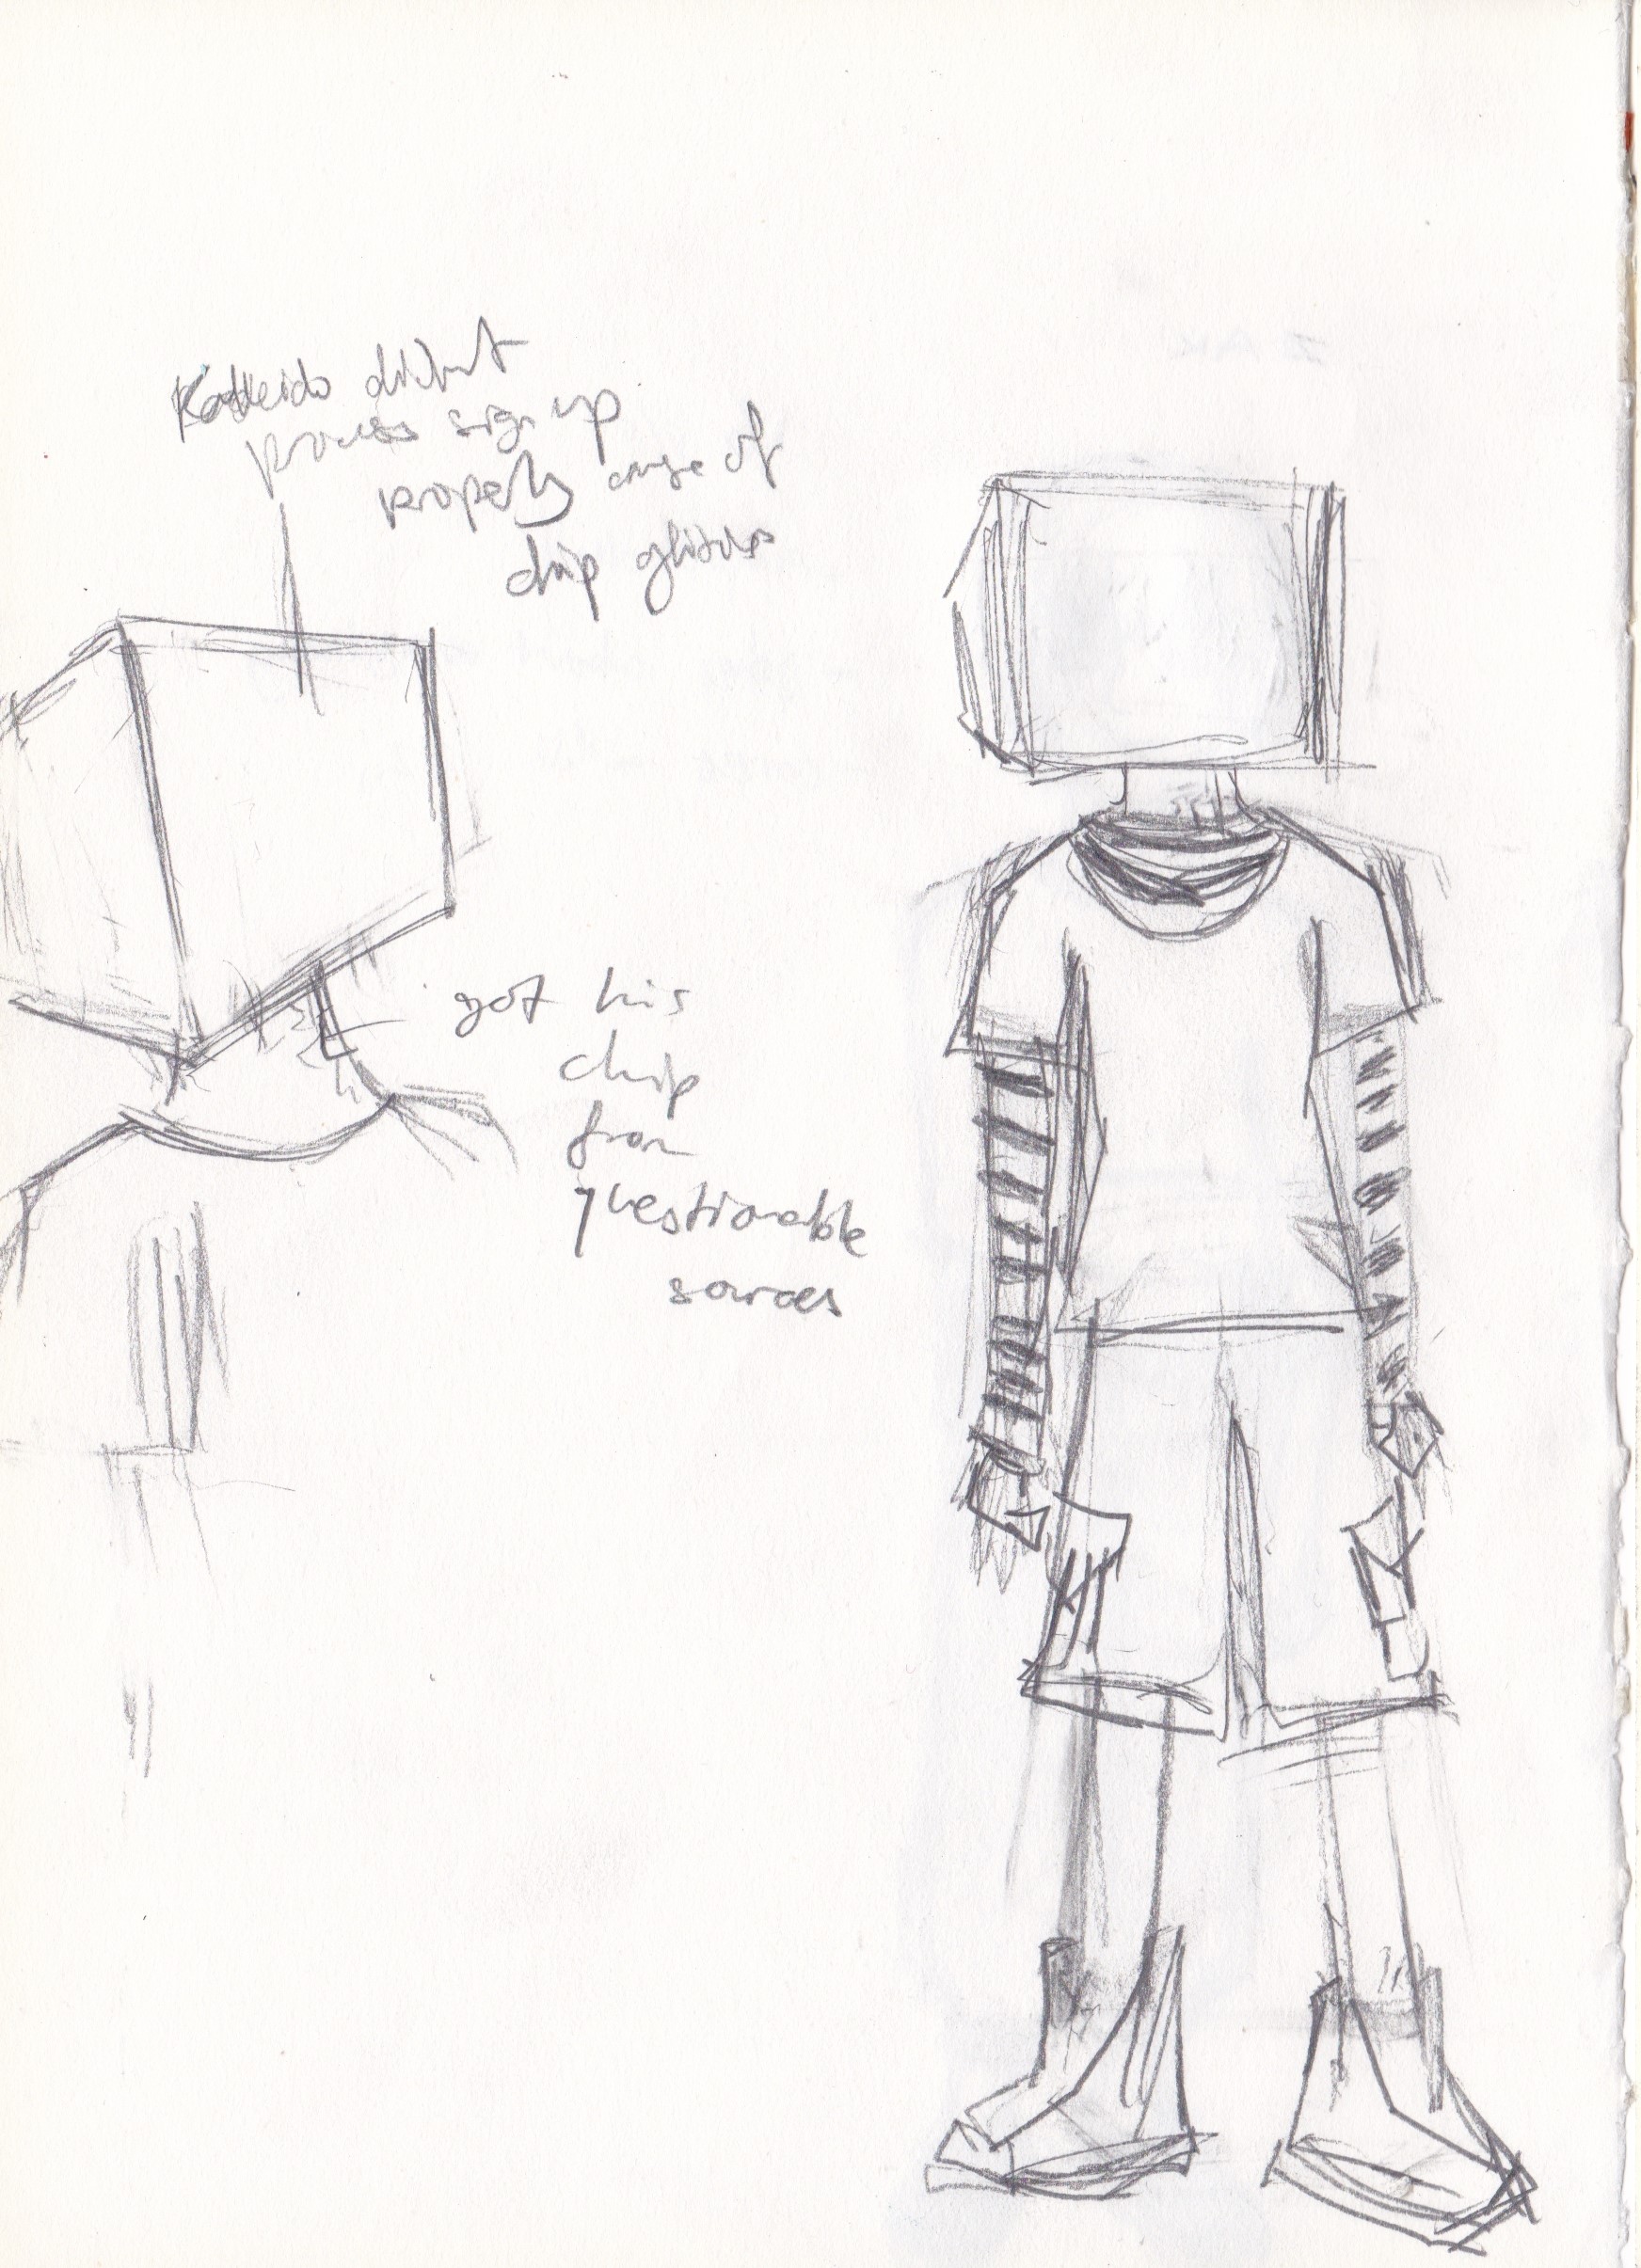 Kalleido didnt
process sign up
properly cause of
chip glitches
got his
chip
from
questionable
sources